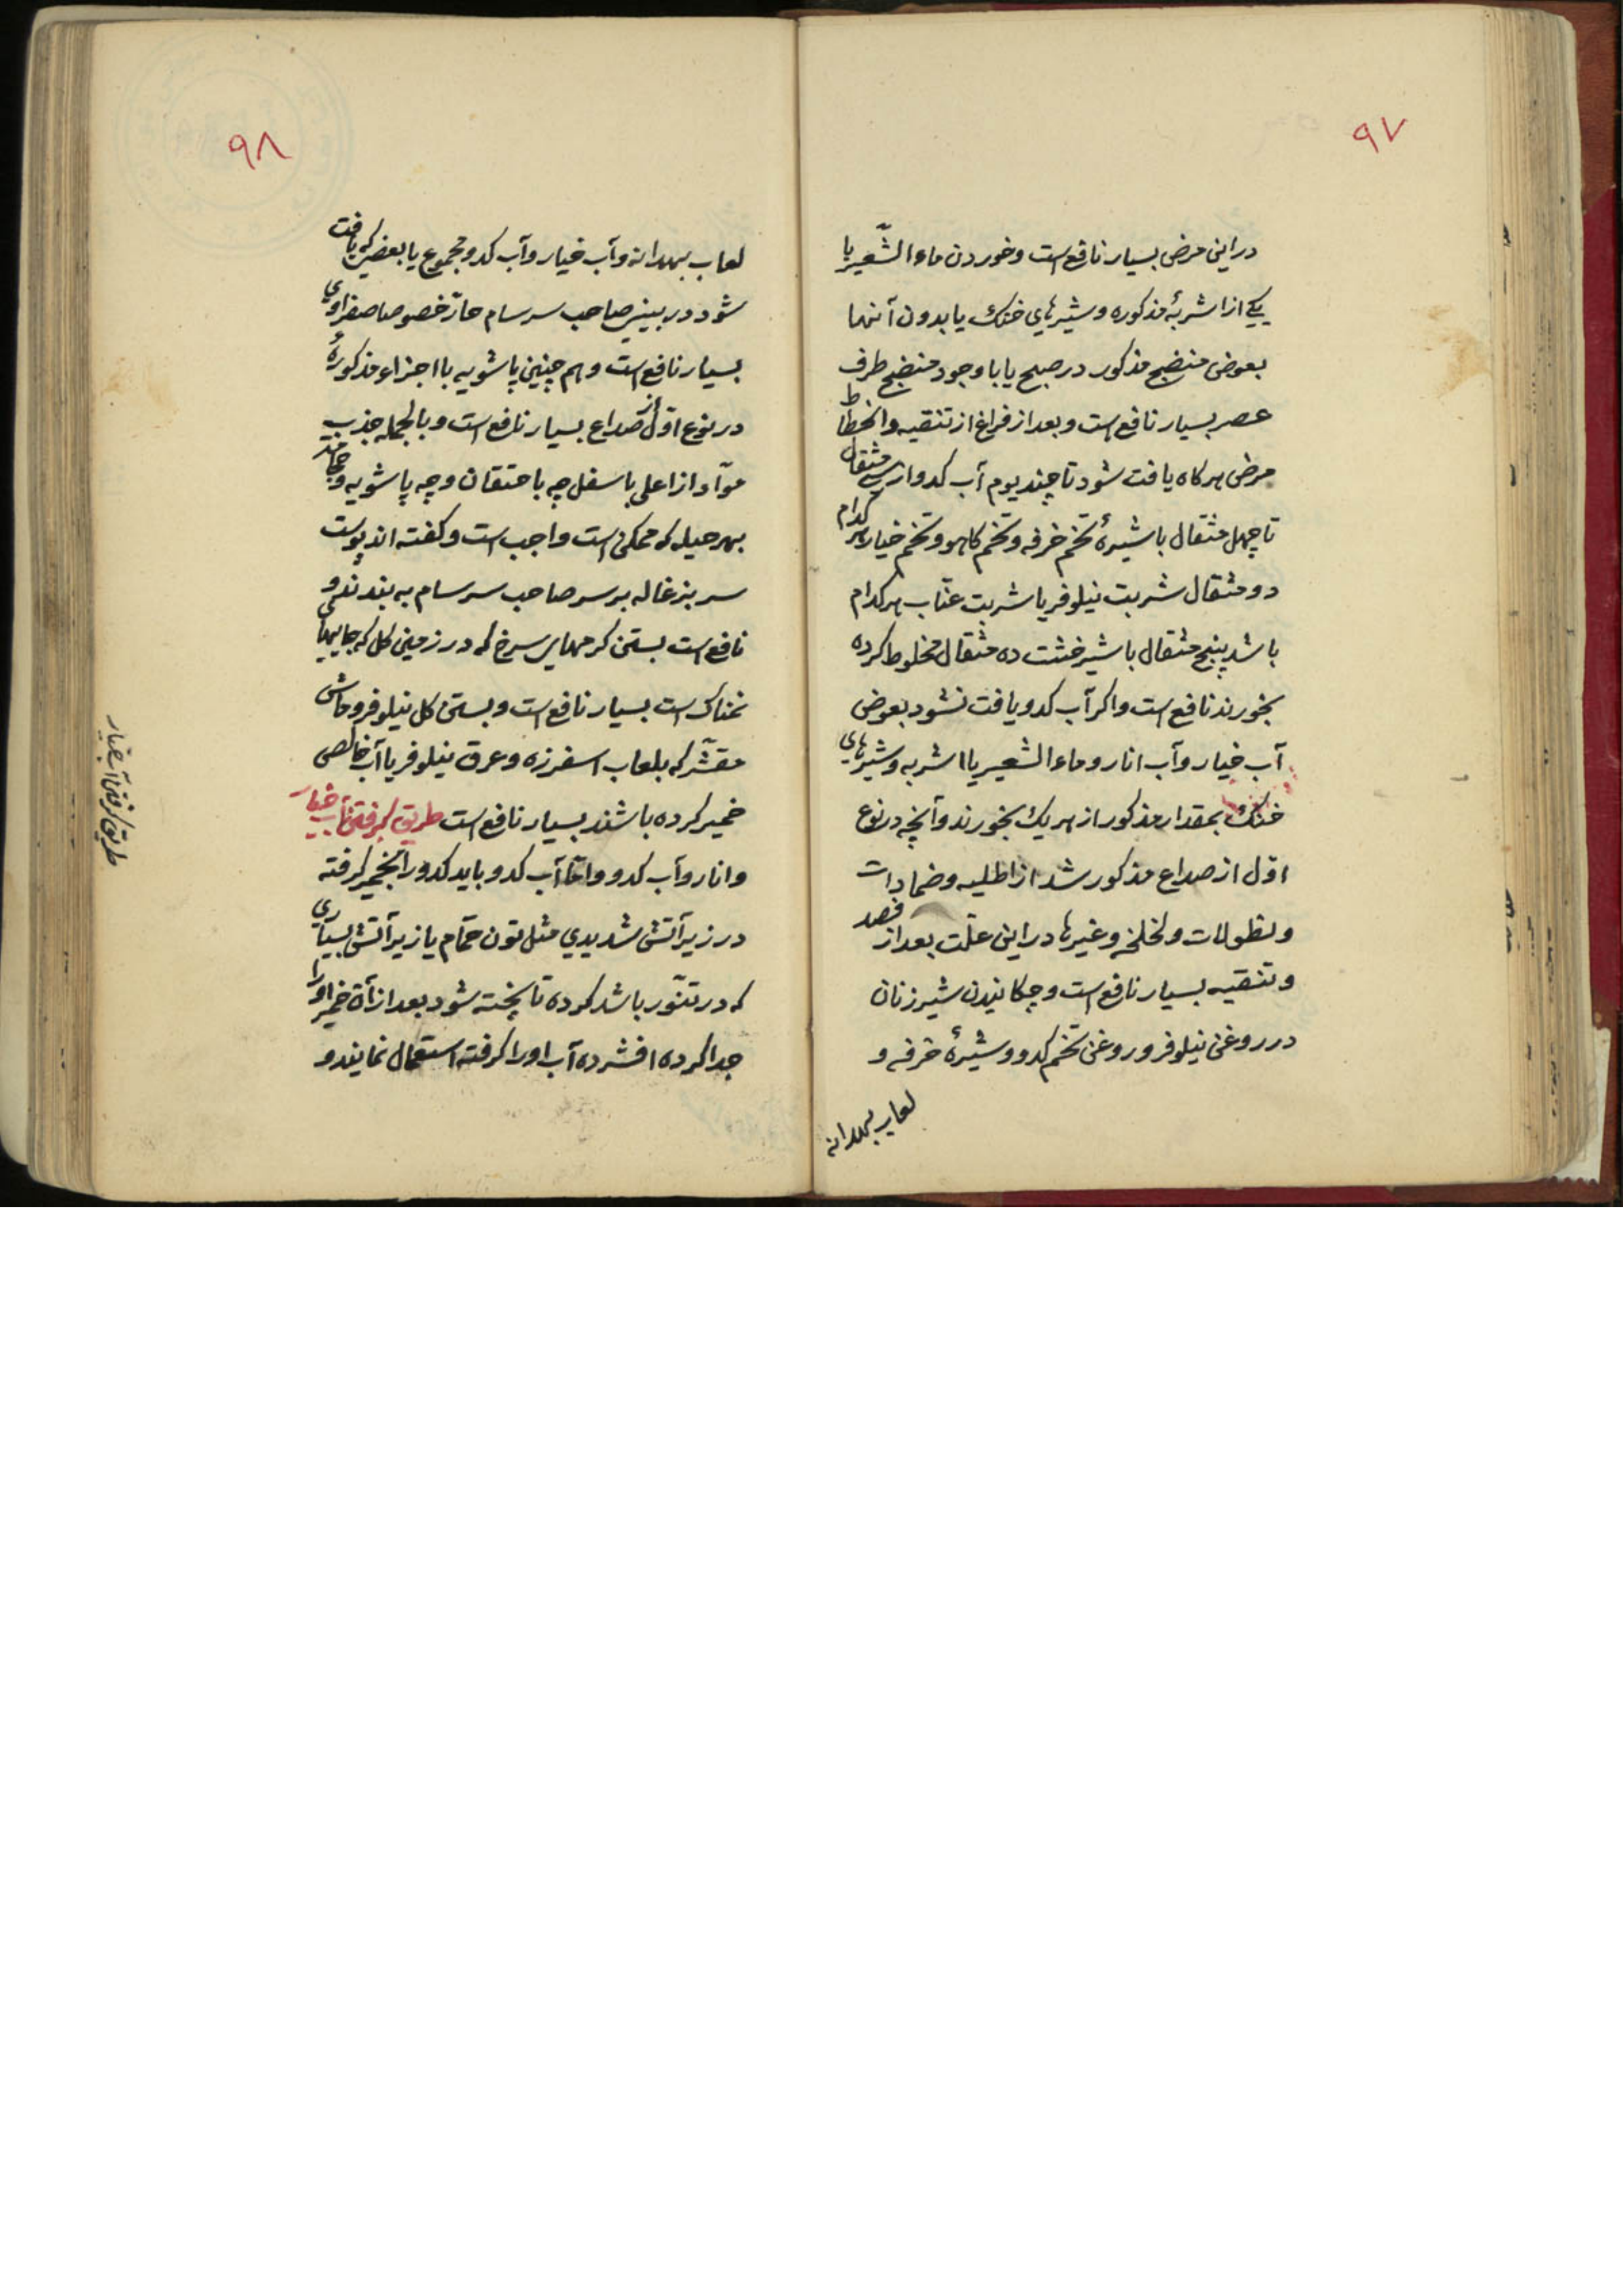 ۹۷
در این مرض بسیار نافع است و خوردن ماء الشّعیر با
یکے از اشربهٔ مذکوره و شیرهای خنک یا بدون آنها
بعوض منضج مذکور در صبح یا با وجود منضج طرف
عصر بسیار نافع است و بعد از فراغ از تنقیه و انحطاط
مرض هر کاه یافت شود تا چند یوم آب کدو از سے مثقال
تا چهل مثقال با شیرهٔ تخم خرفه و تخم کاهو و تخم خیار هر کدام
دو مثقال شربت نیلوفر یا شربت عنّاب هر کدام
باشد پنج مثقال با شیر خشت ده مثقال مخلوط کرده
بخورند نافع است و اکر آب کدو یافت نشود بعوض
آب خیار و آب انار و ماء الشعیر یا اشربه و شیرهای
خنک بمقدار مذکور از هر یک بخورند و آنچه در نوع
اوّل از صداع مذکور شد از اطلیه و ضمادات
و نطولات و لخلخه و غیرها در این علّت بعد از فصد
و تنقیه بسیار نافع است و چکانیدن شیر زنان
در روغن نیلوفر و روغن تخم کدو و شیرهٔ خرفه و
لعاب بهدانه
۹۸
لعاب بهدانه و آب خیار و آب کدو مجموع یا بعضی که یافت
شود در بینی صاحب سرسام حارّ خصوصا صفراوی
بسیار نافع است و هم چنین پاشویه با اجزاء مذکورهٔ
در نوع اوّل از صداع بسیار نافع است و بالجمله جذب
موّاد از اعلی باسفل چه باحتقان و چه پاشویه و چه
بهر حیله که ممکن است واجب است و کفته اند پوست
سر بزغاله بر سر صاحب سرسام به بندند و
نافع است بستن کرمهای سرخ که در زمین کل که جایهای
نمناک است بسیار نافع است و بستن کل نیلوفر و ماش
مقشّر که بلعاب اسفرزه و عرق نیلوفر یا آب خالص
خمیر کرده باشند بسیار نافع است طریق کرفتن آب خیار
و انار و آب کدو و امّا آب کدو باید کدو را بخمیر کرفته
در زیر آتش شدیدی مثل تون حمّام یا زیر آتش بسیاری
که در تنّور باشد کرده تا پخته شود بعد از آن خمیر او را
جدا کرده افشرده آب او را کرفته استعمال نمایند و
طریق کرفتن آب خیار